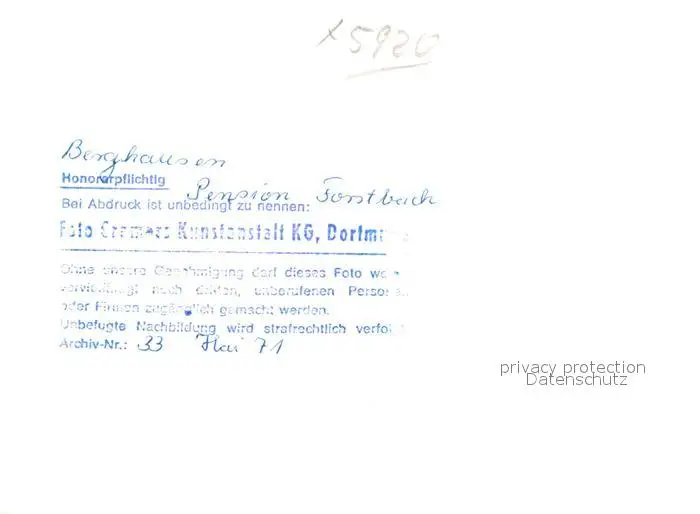 x 5920
Berghausen
Honorarpflichtig
Pension Forstbach
Bei Abdruck ist unbedingt zu nennen:
Foto Cramers Kunstanstalt KG, Dortm
Ohne unsere Genehmigung darf dieses Foto
vervielfältigt noch dritten, unberufenen
oder Firmen zugänglich gemacht werden.
Unbefugte Nachbildung wird strafrechtlich
Archiv-Nr.: 33 Mai 71
privacy protection
Datenschutz